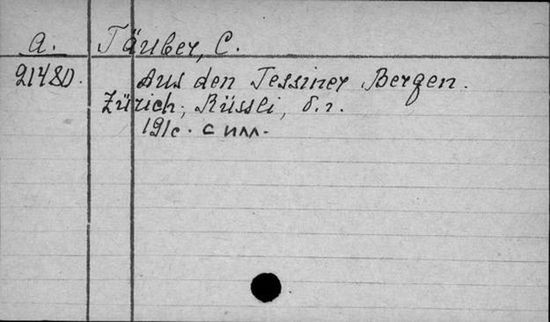 А. Täuber, C.
21480. Aus den Tessiner Bergen.
Zürich, Rüssli, б.г.
191с. с илл.